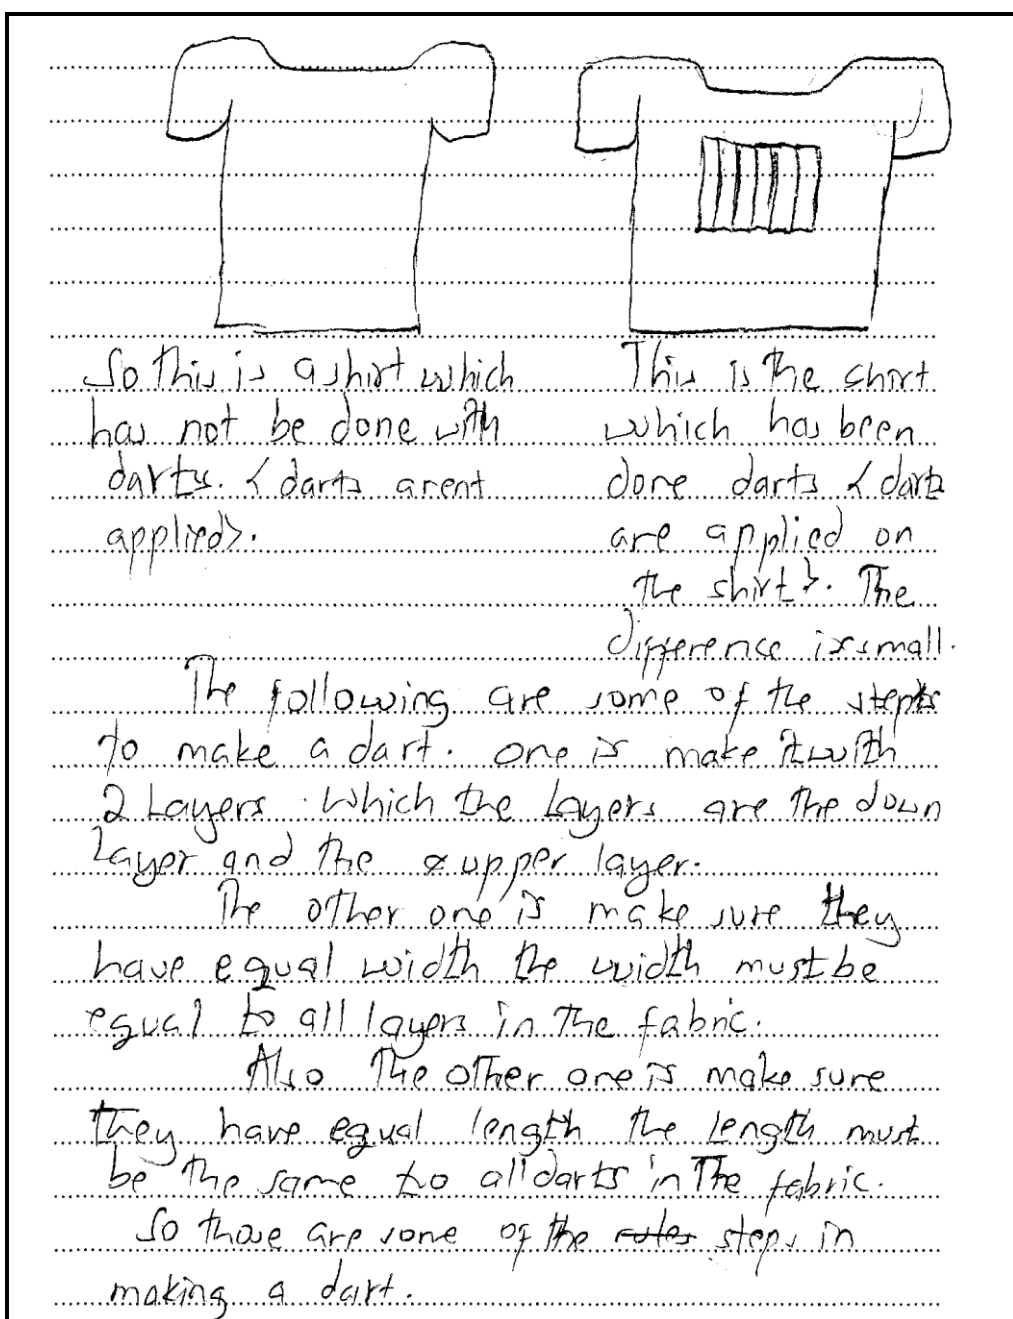 So this is a shirt which
has not be done with
darts. < darts arent
applied>.
This is the shirt
which has been
done darts < darts
are applied on
the shirt>. The
difference is small.
The following are some of the steps
to make a dart. One is make it with
2 Layers. Which the layers are the down
layer and the upper layer.
The other one is make sure they
have equal width the width must be
equal to all layers in the fabric.
Also the other one is make sure
they have equal length the length must
be the same to all darts in the fabric.
So those are some of the rules steps in
making a dart.